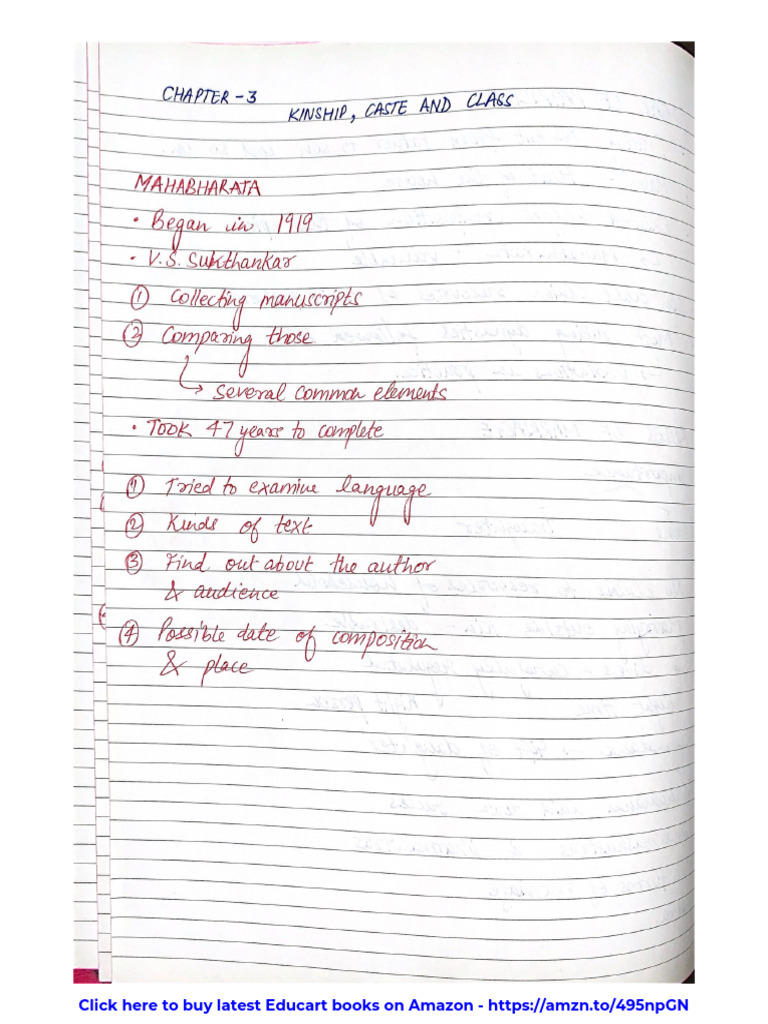 CHAPTER-3
KINSHIP, CASTE AND CLASS
MAHABHARATA
• Began in 1919
• V.S. Sukthankar
① Collecting manuscripts
② Comparing those
↳ several common elements
• Took 47 years to complete
① Tried to examine language
② Kinds of text
③ Find out about the author
& audience
④ Possible date of composition
& place
Click here to buy latest Educart books on Amazon - https://amzn.to/495npGN